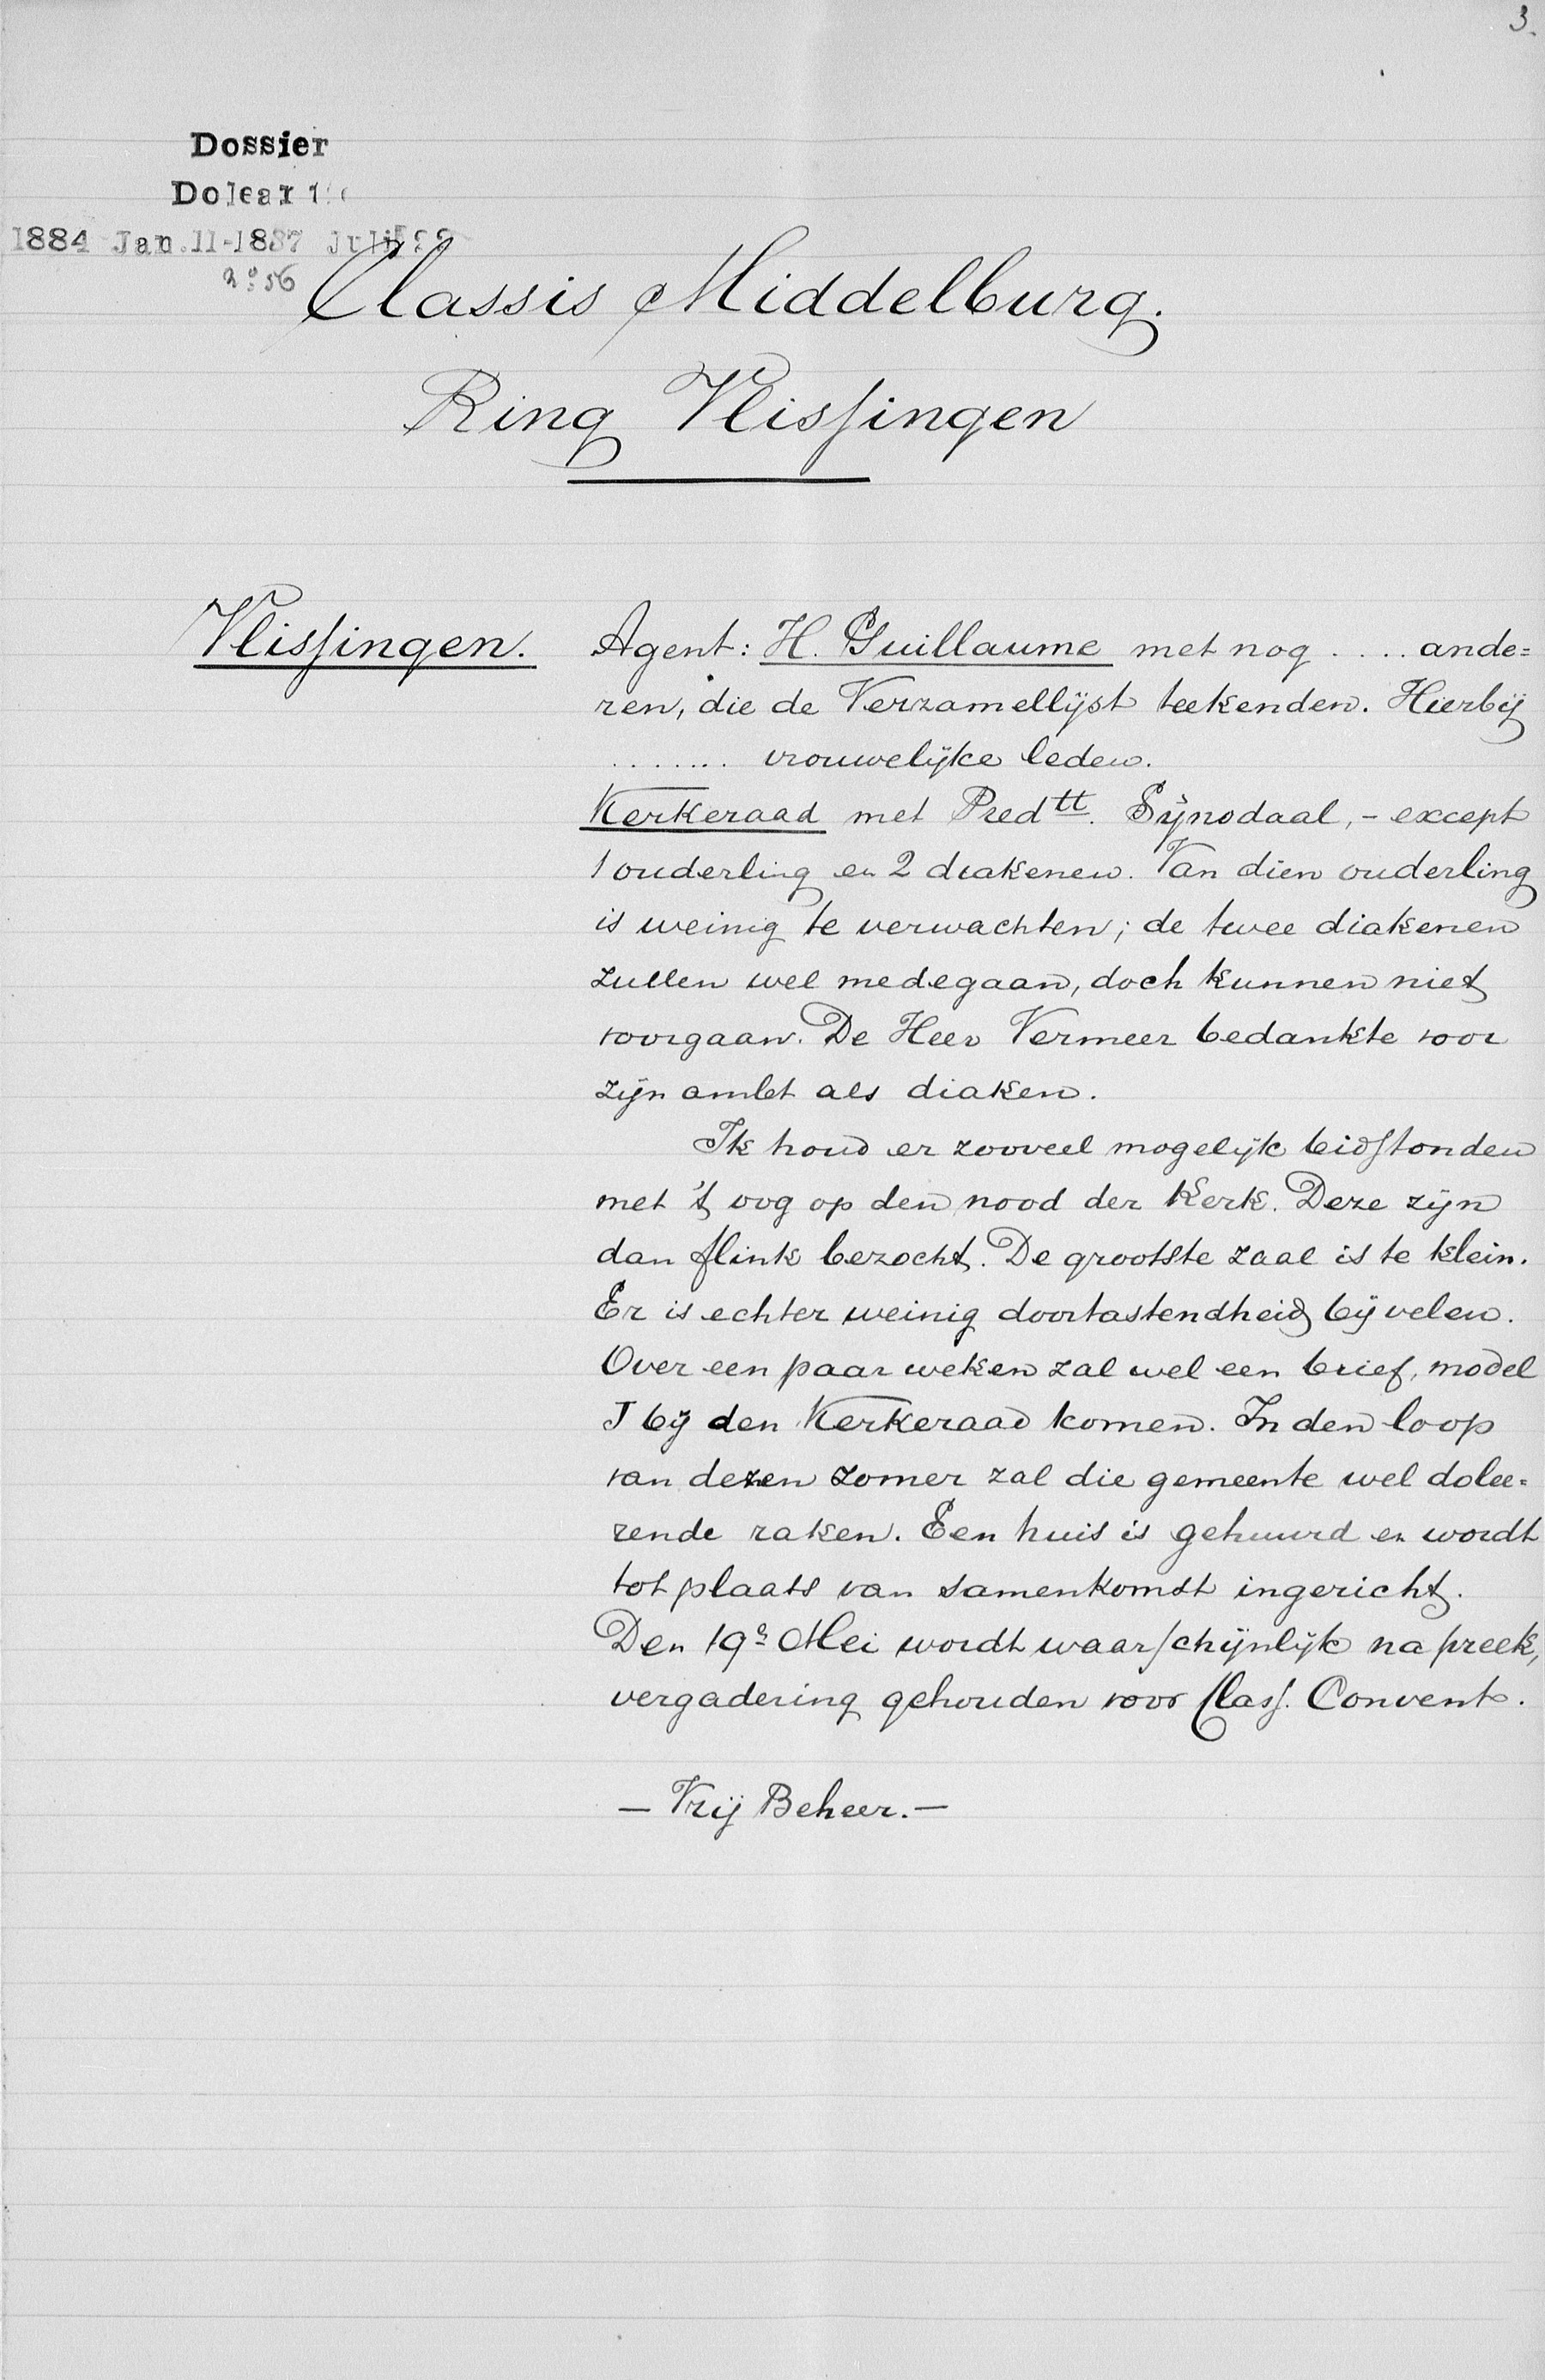 3.
Dossier
1884 Jan. 11-1887 Juli
Classis Middelburg.
Ring Vlissingen
Vlissingen. Agent: H. Guillaume met nog .... ande=
ren, die de Verzamellijst teekenden. Hierbij
....... vrouwelijke leden.
Kerkeraad met Predtt. Synodaal, - except
1 ouderling en 2 diakenen. Van dien ouderling
is weinig te verwachten; de twee diakenen
zullen wel medegaan, doch kunnen niet
voorgaan. De Heer Vermeer bedankte voor
zijn ambt als diaken.
Ik houd er zooveel mogelijk bidstonden
met 't oog op den nood der Kerk. Deze zijn
dan flink bezocht. De grootste zaal is te klein.
Er is echter weinig doortastendheid bij velen.
Over een paar weken zal wel een brief, model
I bij den Kerkeraad komen. In den loop
van dezen zomer zal die gemeente wel dolee=
rende raken. Een huis is gehuurd en wordt
tot plaats van samenkomst ingericht.
Den 19e Mei wordt waarschijnlijk na preek,
vergadering gehouden voor Class. Convent.
- Vrij Beheer. -